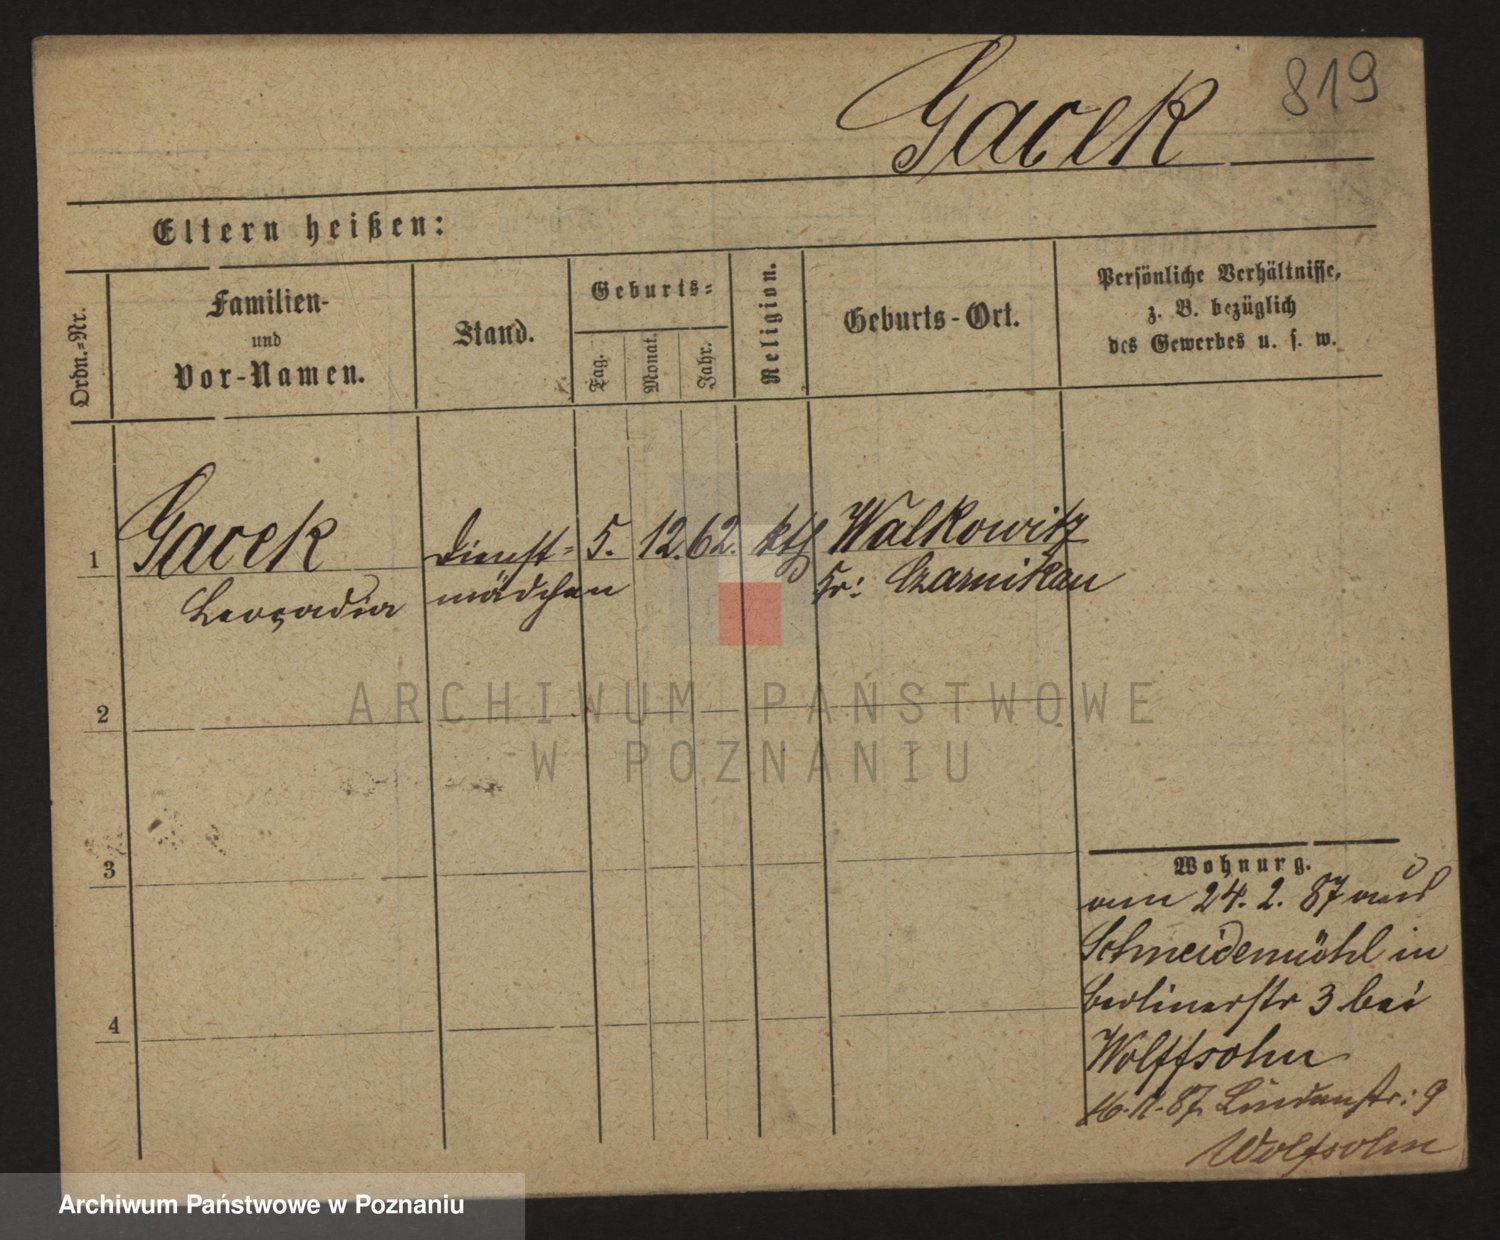 819
Gacek
Eltern heißen:
Ordn.-Nr.
Familien-
und
Vor-Namen.
Stand.
Geburts-
Tag.
Monat.
Jahr.
Religion.
Geburts-Ort.
Persönliche Verhältnisse,
z. B. bezüglich
des Gewerbes u. s. w.
1 Gacek Dienst- 5. 12. 62. kth Walkowitz
Leocadia mädchen Kr: Czarnikau
ARCHIWUM PAŃSTWOWE
W POZNANIU
2
3
4
Wohnung.
am 24. 2. 87 aus
Schneidemühl in
Berlinerstr 3 bei
Wolffsohn
16.11.87. Lindenstr: 9
Wolfsohn
Archiwum Państwowe w Poznaniu